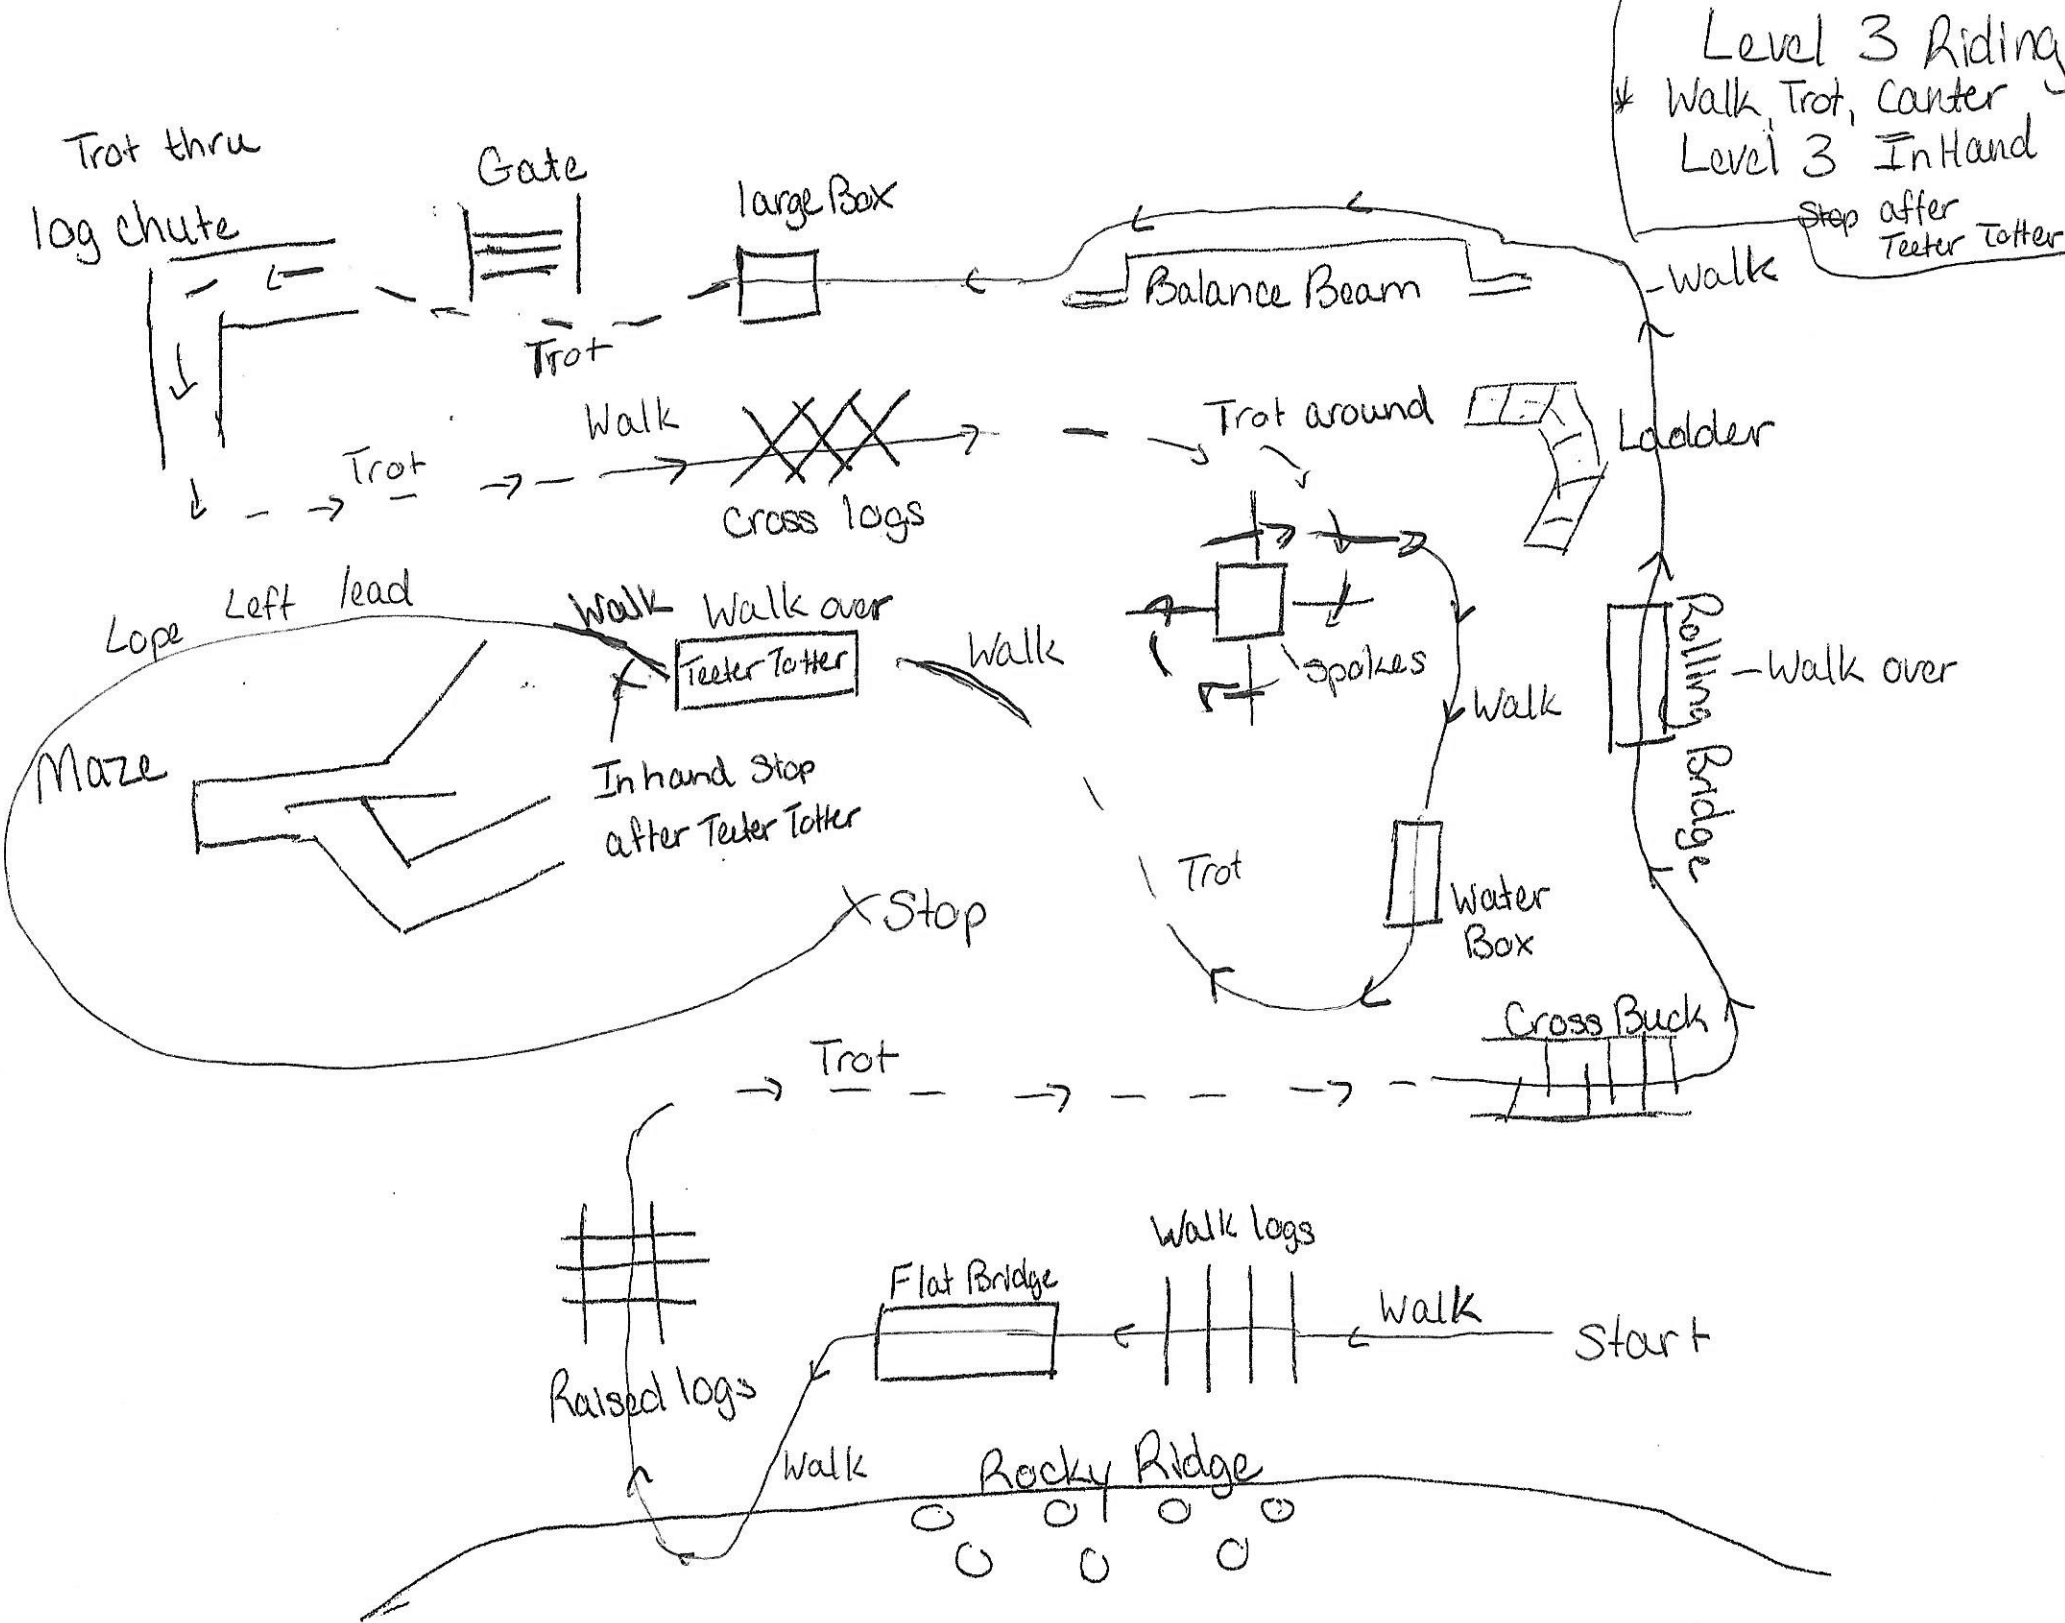 Level 3 Riding
* Walk, Trot, Canter
Level 3 InHand
Stop after
Teeter Totter
Trot thru
log chute
Gate
large Box
Balance Beam
Walk
Trot
Walk
Cross logs
Trot
Trot around
Ladder
Spokes
Walk
Rolling Bridge
Walk over
Lope Left lead
Walk
Walk over
Teeter Totter
Walk
Maze
In hand Stop
after Teeter Totter
Stop
Trot
Water
Box
Cross Buck
Trot
Raised logs
Flat Bridge
Walk logs
Walk
Start
Walk
Rocky Ridge